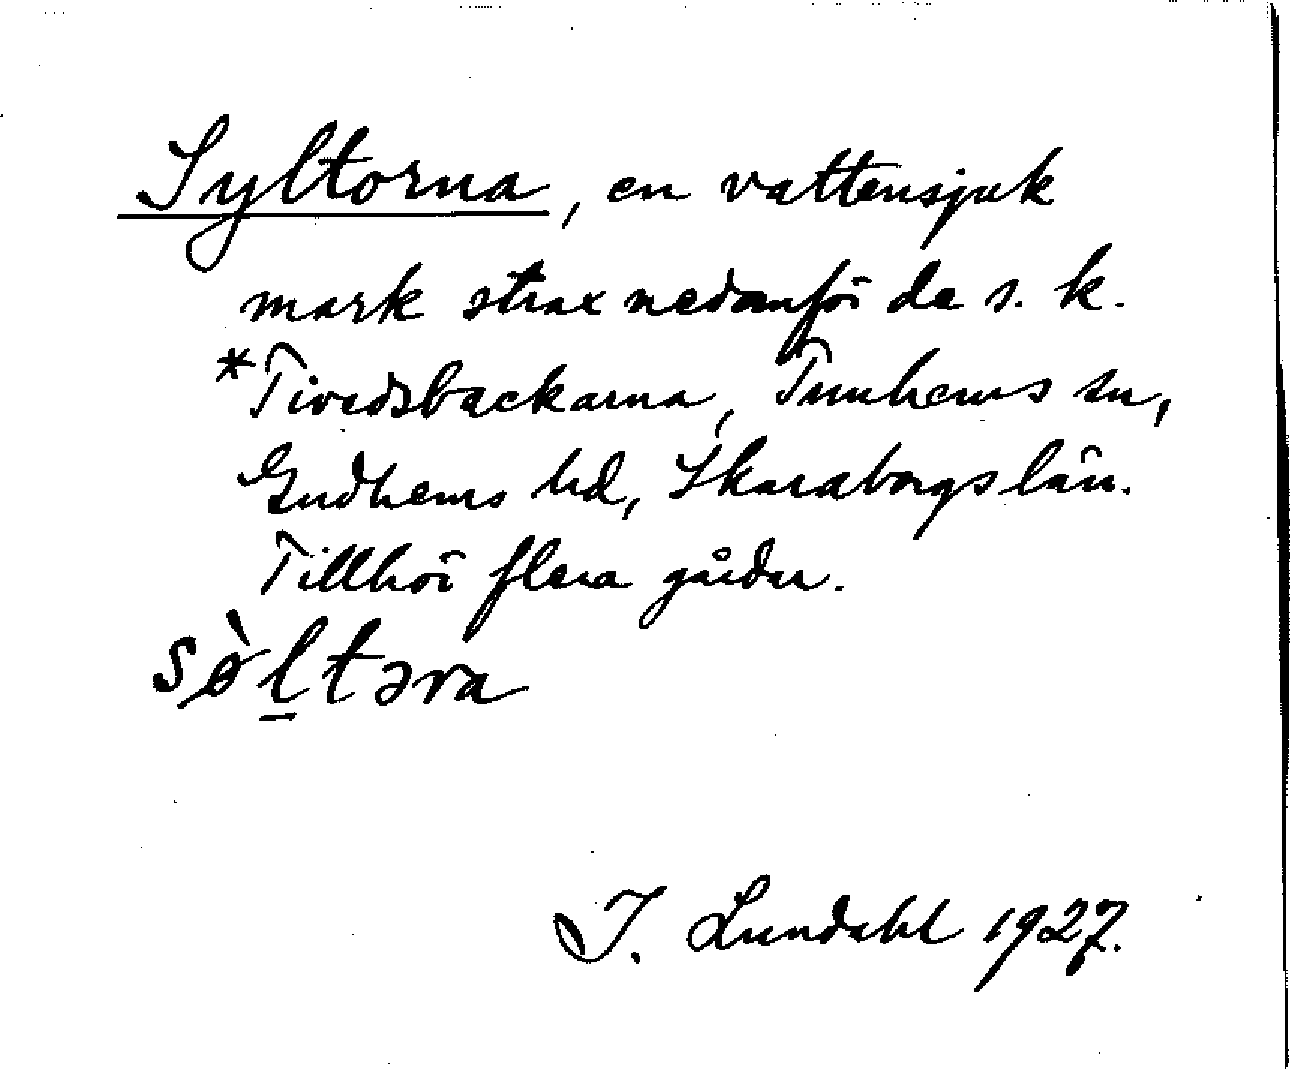 Syltorna, en vattensjuk
mark strax nedanför de s. k.
*Tivedsbackarna, Tunhems sn,
Gudhems hd, Skaraborgs län.
Tillhör flera gårdar.
sø̀l̠təra
I. Lundahl 1927.